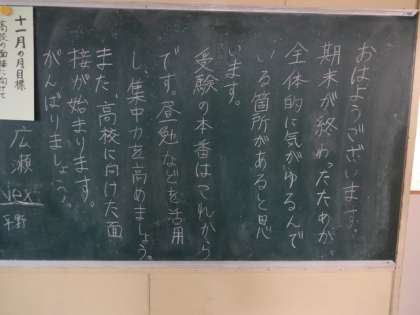 おはようございます。
期末が終わったためか
全体的に気がゆるんで
いる箇所があると思
います。
受験の本番はこれから
です。昼勉などを活用
し、集中力を高めましょう。
また、高校に向けた面
接が始まります。
がんばりましょう。
広瀬
next
平野
十一月の月目標
高校の面接に向けて